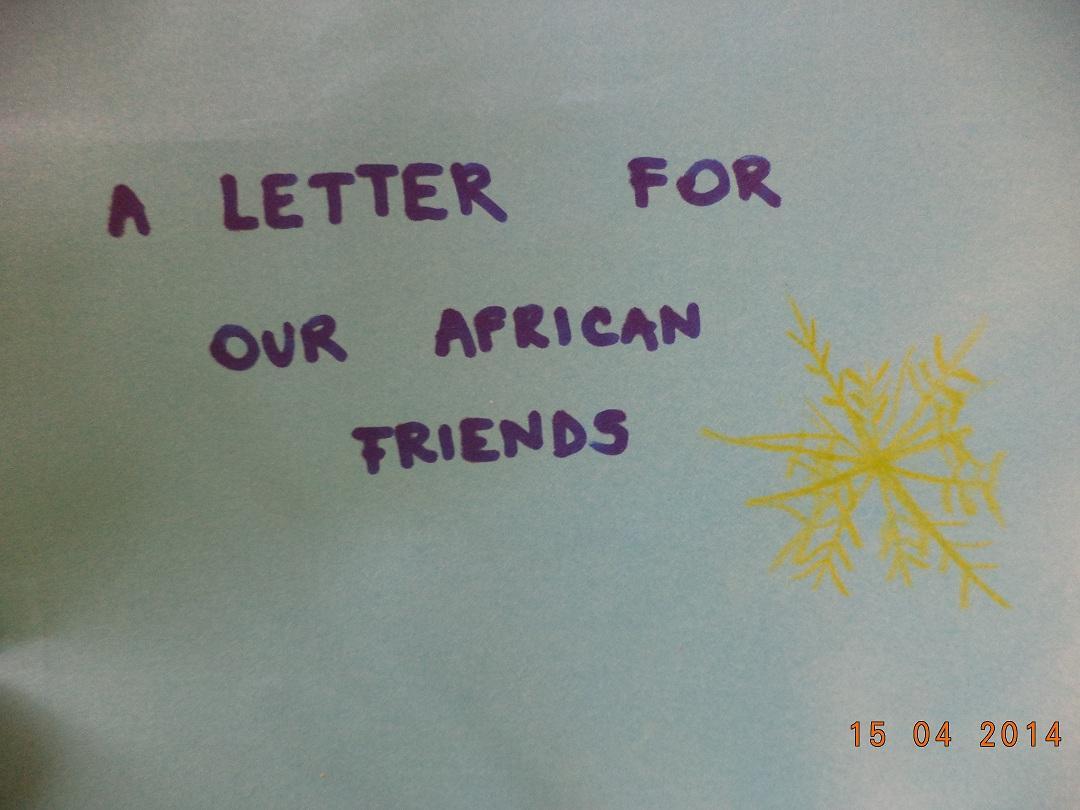 A LETTER FOR
OUR AFRICAN
FRIENDS
15 04 2014